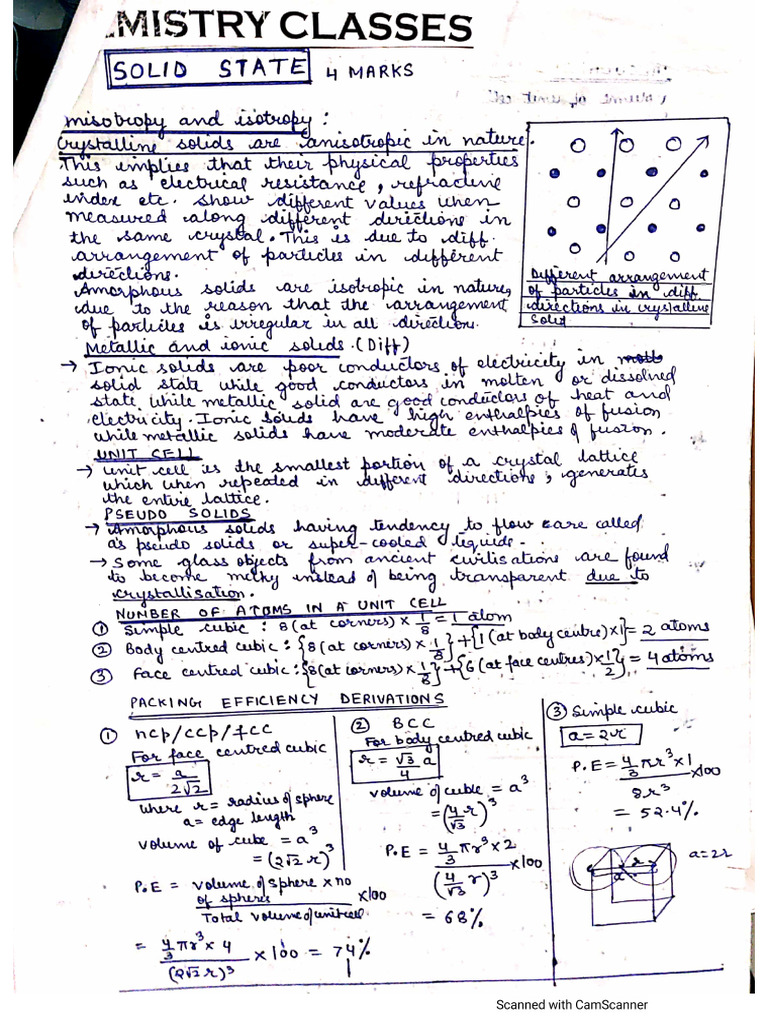 EMISTRY CLASSES
SOLID STATE 4 MARKS
nisotropy and isotropy :
Crystalline solids are anisotropic in nature.
This implies that their physical properties
such as electrical resistance, refractive
index etc. show different values when
measured along different directions in
the same crystal. This is due to diff.
arrangement of particles in different
directions.
Amorphous solids are isotropic in nature,
due to the reason that the arrangement
of particles is irregular in all direction.
Different arrangement
of particles in diff.
directions in crystalline
solid
Metallic and ionic solids. (Diff)
→ Ionic solids are poor conductors of electricity in
solid state while good conductors in molten or dissolved
state while metallic solid are good conductors of heat and
electricity. Ionic solids have high enthalpies of fusion
while metallic solids have moderate enthalpies of fusion.
UNIT CELL
→ Unit cell is the smallest portion of a crystal lattice
which when repeated in different directions, generates
the entire lattice.
PSEUDO SOLIDS
→ Amorphous solids having tendency to flow are called
as pseudo solids or super-cooled liquids.
→ Some glass objects from ancient civilisations are found
to become milky instead of being transparent due to
crystallisation.
NUMBER OF ATOMS IN A UNIT CELL
① Simple cubic : 8 (at corners) × 1/8 = 1 atom
② Body centred cubic : {8 (at corners) × 1/8} + {1 (at body centre) × 1} = 2 atoms
③ Face centred cubic : {8 (at corners) × 1/8} + {6 (at face centres) × 1/2} = 4 atoms
PACKING EFFICIENCY DERIVATIONS
① hcp/ccp/fcc
For face centred cubic
r = a/2√2
where r = radius of sphere
a = edge length
volume of cube = a³
= (2√2 r)³
P.E = volume of sphere × no of spheres / Total volume of unit cell × 100
= 4/3 πr³ × 4 / (2√2 r)³ × 100 = 74%
② BCC
For body centred cubic
r = √3/4 a
volume of cube = a³
= (4/√3 r)³
P.E = 4/3 πr³ × 2 / (4/√3 r)³ × 100
= 68%
③ Simple cubic
a = 2r
P.E = 4/3 πr³ × 1 / 8r³ × 100
= 52.4%
r
a
a = 2r
Scanned with CamScanner